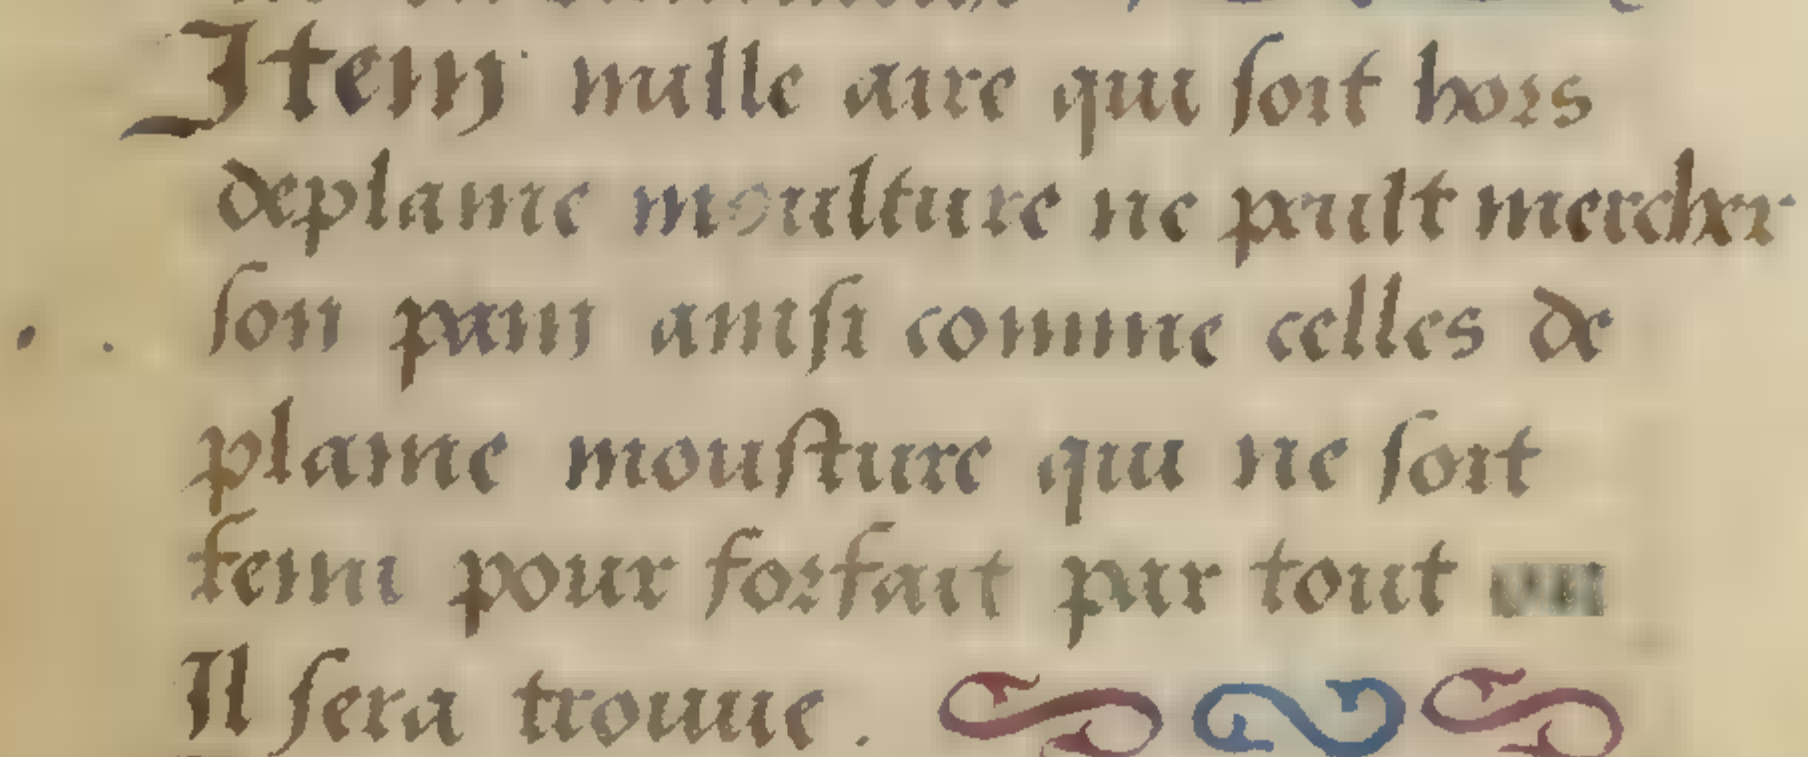 Item nulle aire qui soit hors
deplaine moulture ne peult mercher
son pain ainsi comme celles de
plaine mousture qui ne soit
tenu pour forfait par tout
Il sera trouue .